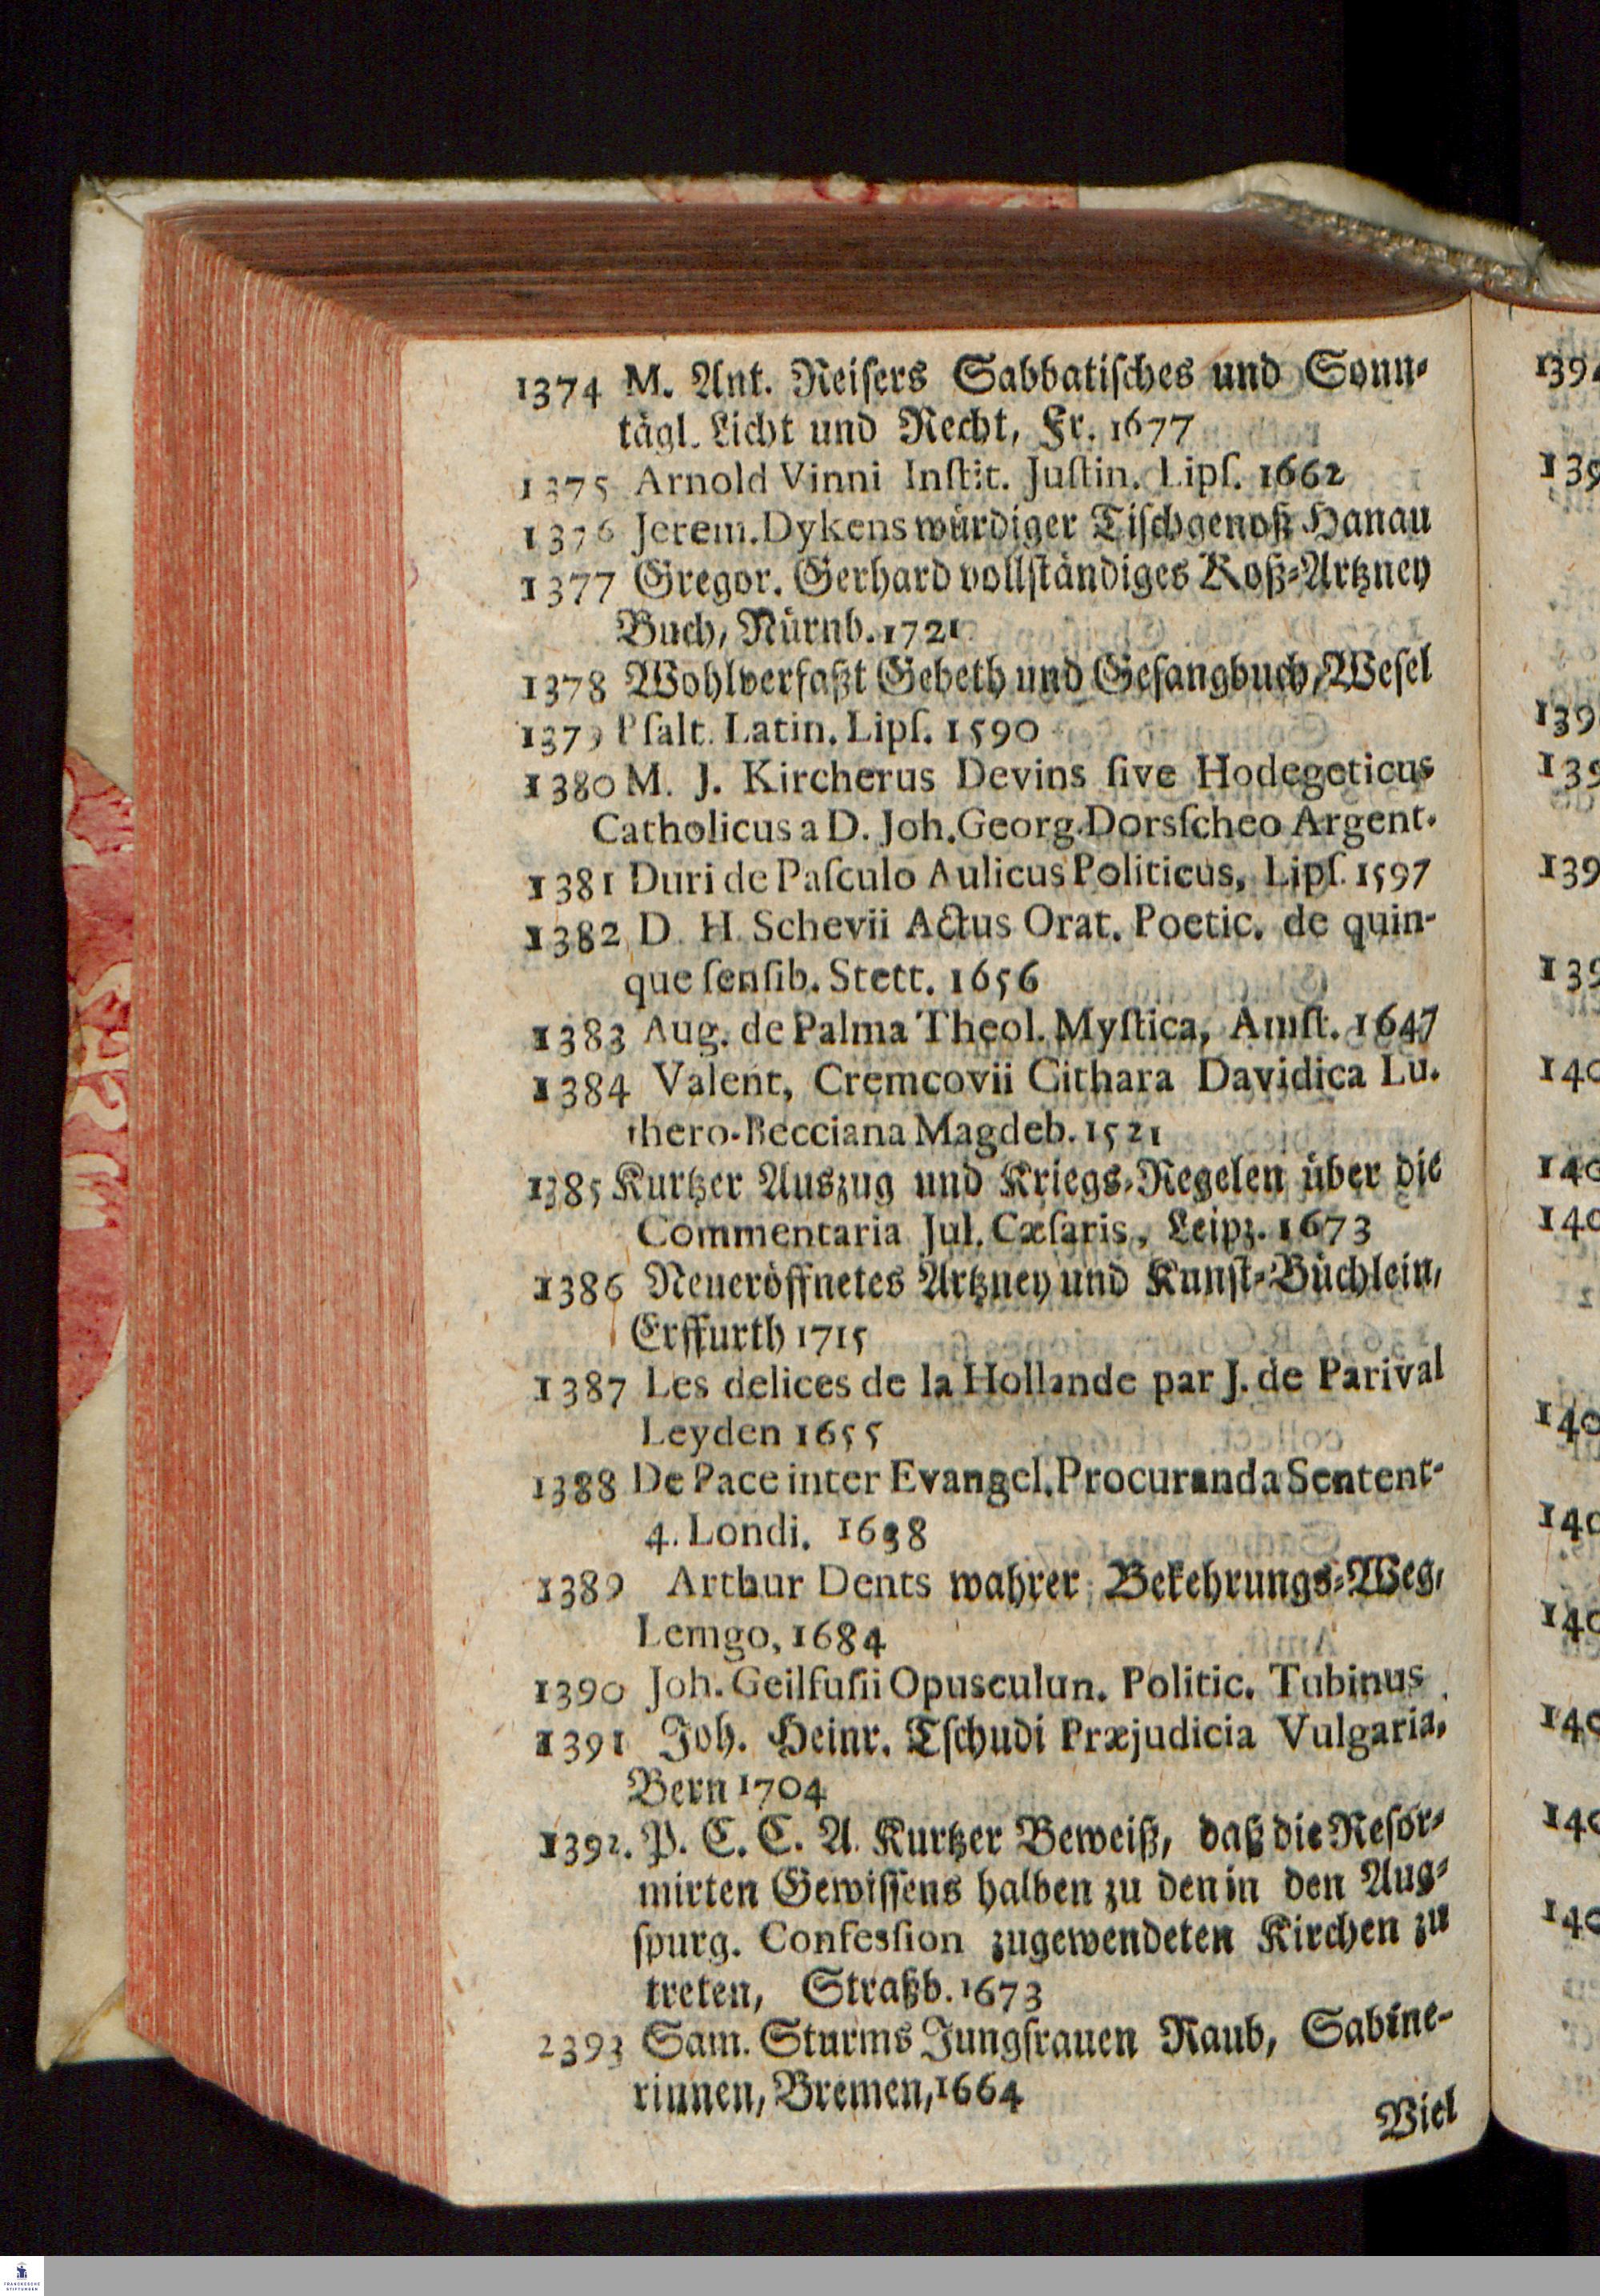 1374 M. Ant. Reiſers Sabbatiſches und Sonn⸗
tägl. Licht und Recht, Fr. 1677
1375 Arnold Vinni Inſtit. Juſtin. Lipſ. 1662
1376 Jerem. Dykens würdiger Tiſchgenoß Hanau
1377 Gregor. Gerhard vollſtändiges Roß⸗Artzney
Buch, Nürnb. 1721
1378 Wohlverfaßt Gebeth und Geſangbuch, Weſel
1379 Pſalt. Latin. Lipſ. 1590
1380 M. J. Kircherus Devins ſive Hodegeticus
Catholicus a D. Joh. Georg. Dorsſcheo Argent.
1381 Duri de Paſculo Aulicus Politicus, Lipſ. 1597
1382 D. H. Schevii Actus Orat. Poetic. de quin-
que ſenſib. Stett. 1656
1383 Aug. de Palma Theol. Myſtica, Amſt. 1647
1384 Valent, Cremcovii Githara Davidica Lu.
thero-Becciana Magdeb. 1521
1385 Kurtzer Auszug und Kriegs⸗Regelen über die
Commentaria Jul. Cæſaris, Leipz. 1673
1386 Neueröffnetes Artzney und Kunſt⸗Büchlein,
Erffurth 1715
1387 Les delices de la Hollande par J. de Parival
Leyden 1655
1388 De Pace inter Evangel. Procuranda Sentent-
4. Londi. 1638
1389 Arthur Dents wahrer Bekehrungs⸗Weg,
Lemgo, 1684
1390 Joh. Geilfuſii Opusculun. Politic. Tubinus
1391 Joh. Heinr. Tſchudi Præjudicia Vulgaria,
Bern 1704
1392. P. C. C. A. Kurtzer Beweiß, daß die Reſor⸗
mirten Gewiſſens halben zu den in den Aug⸗
ſpurg. Confesſion zugewendeten Kirchen zu
treten, Straßb. 1673
2393 Sam. Sturms Jungfrauen Raub, Sabine-
rinnen, Bremen, 1664
Viel
139
139
139
139
139
140
140
140
140
140
140
140
140
FRANCKESCHE
STIFTUNGEN